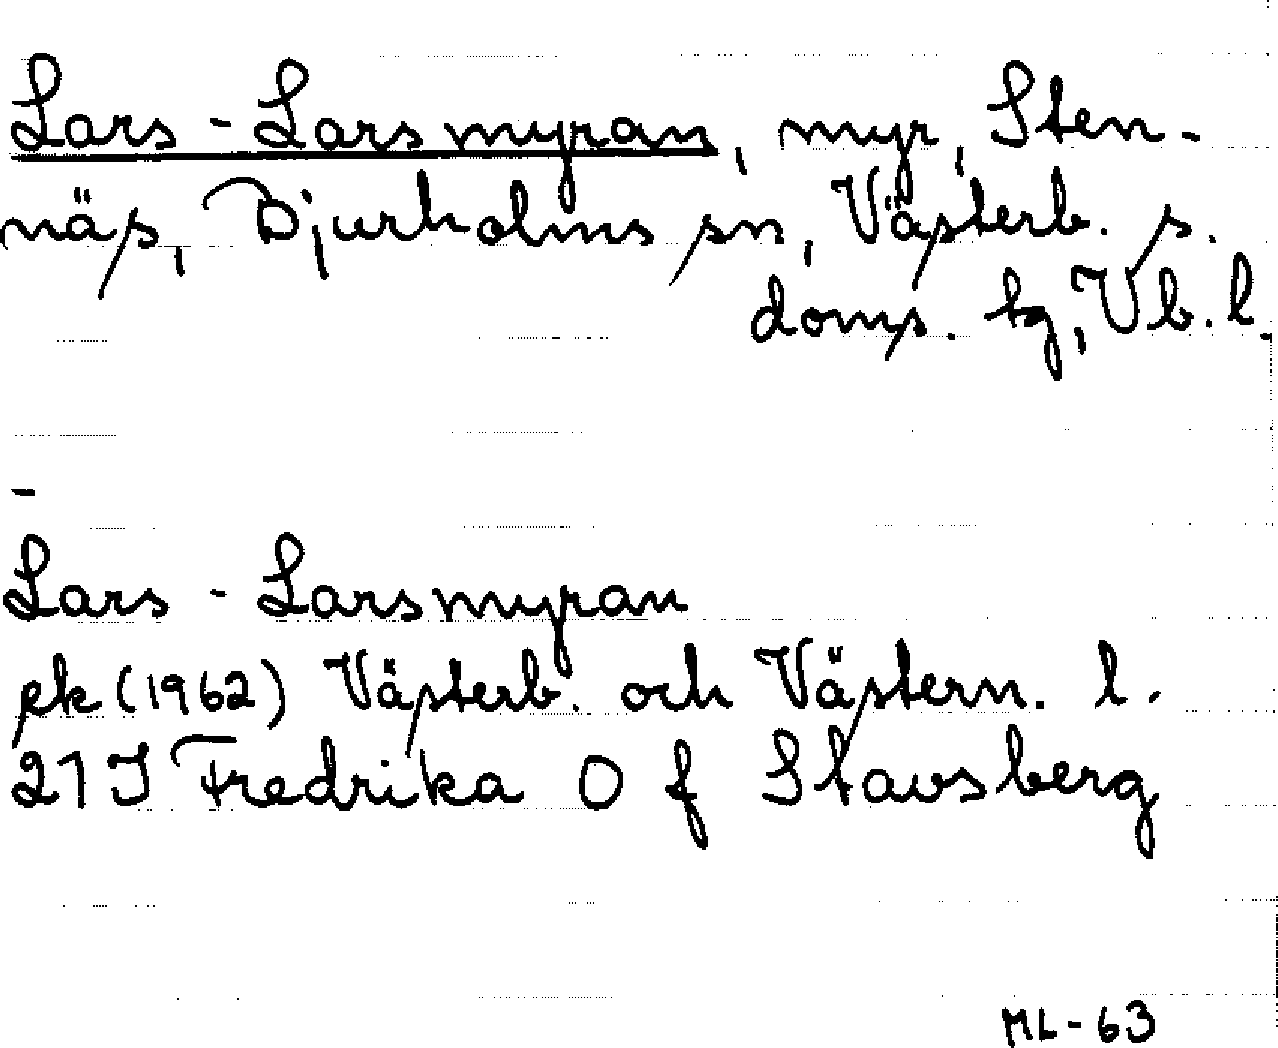 Lars-Larsmyran, myr, Sten-
näs, Bjurholms sn, Västerb. s.
doms. tg, Vb. l.
-
Lars-Larsmyran
ek (1962) Västerb. och Västern. l.
21 J Fredrika O f Stavsberg
ML-63